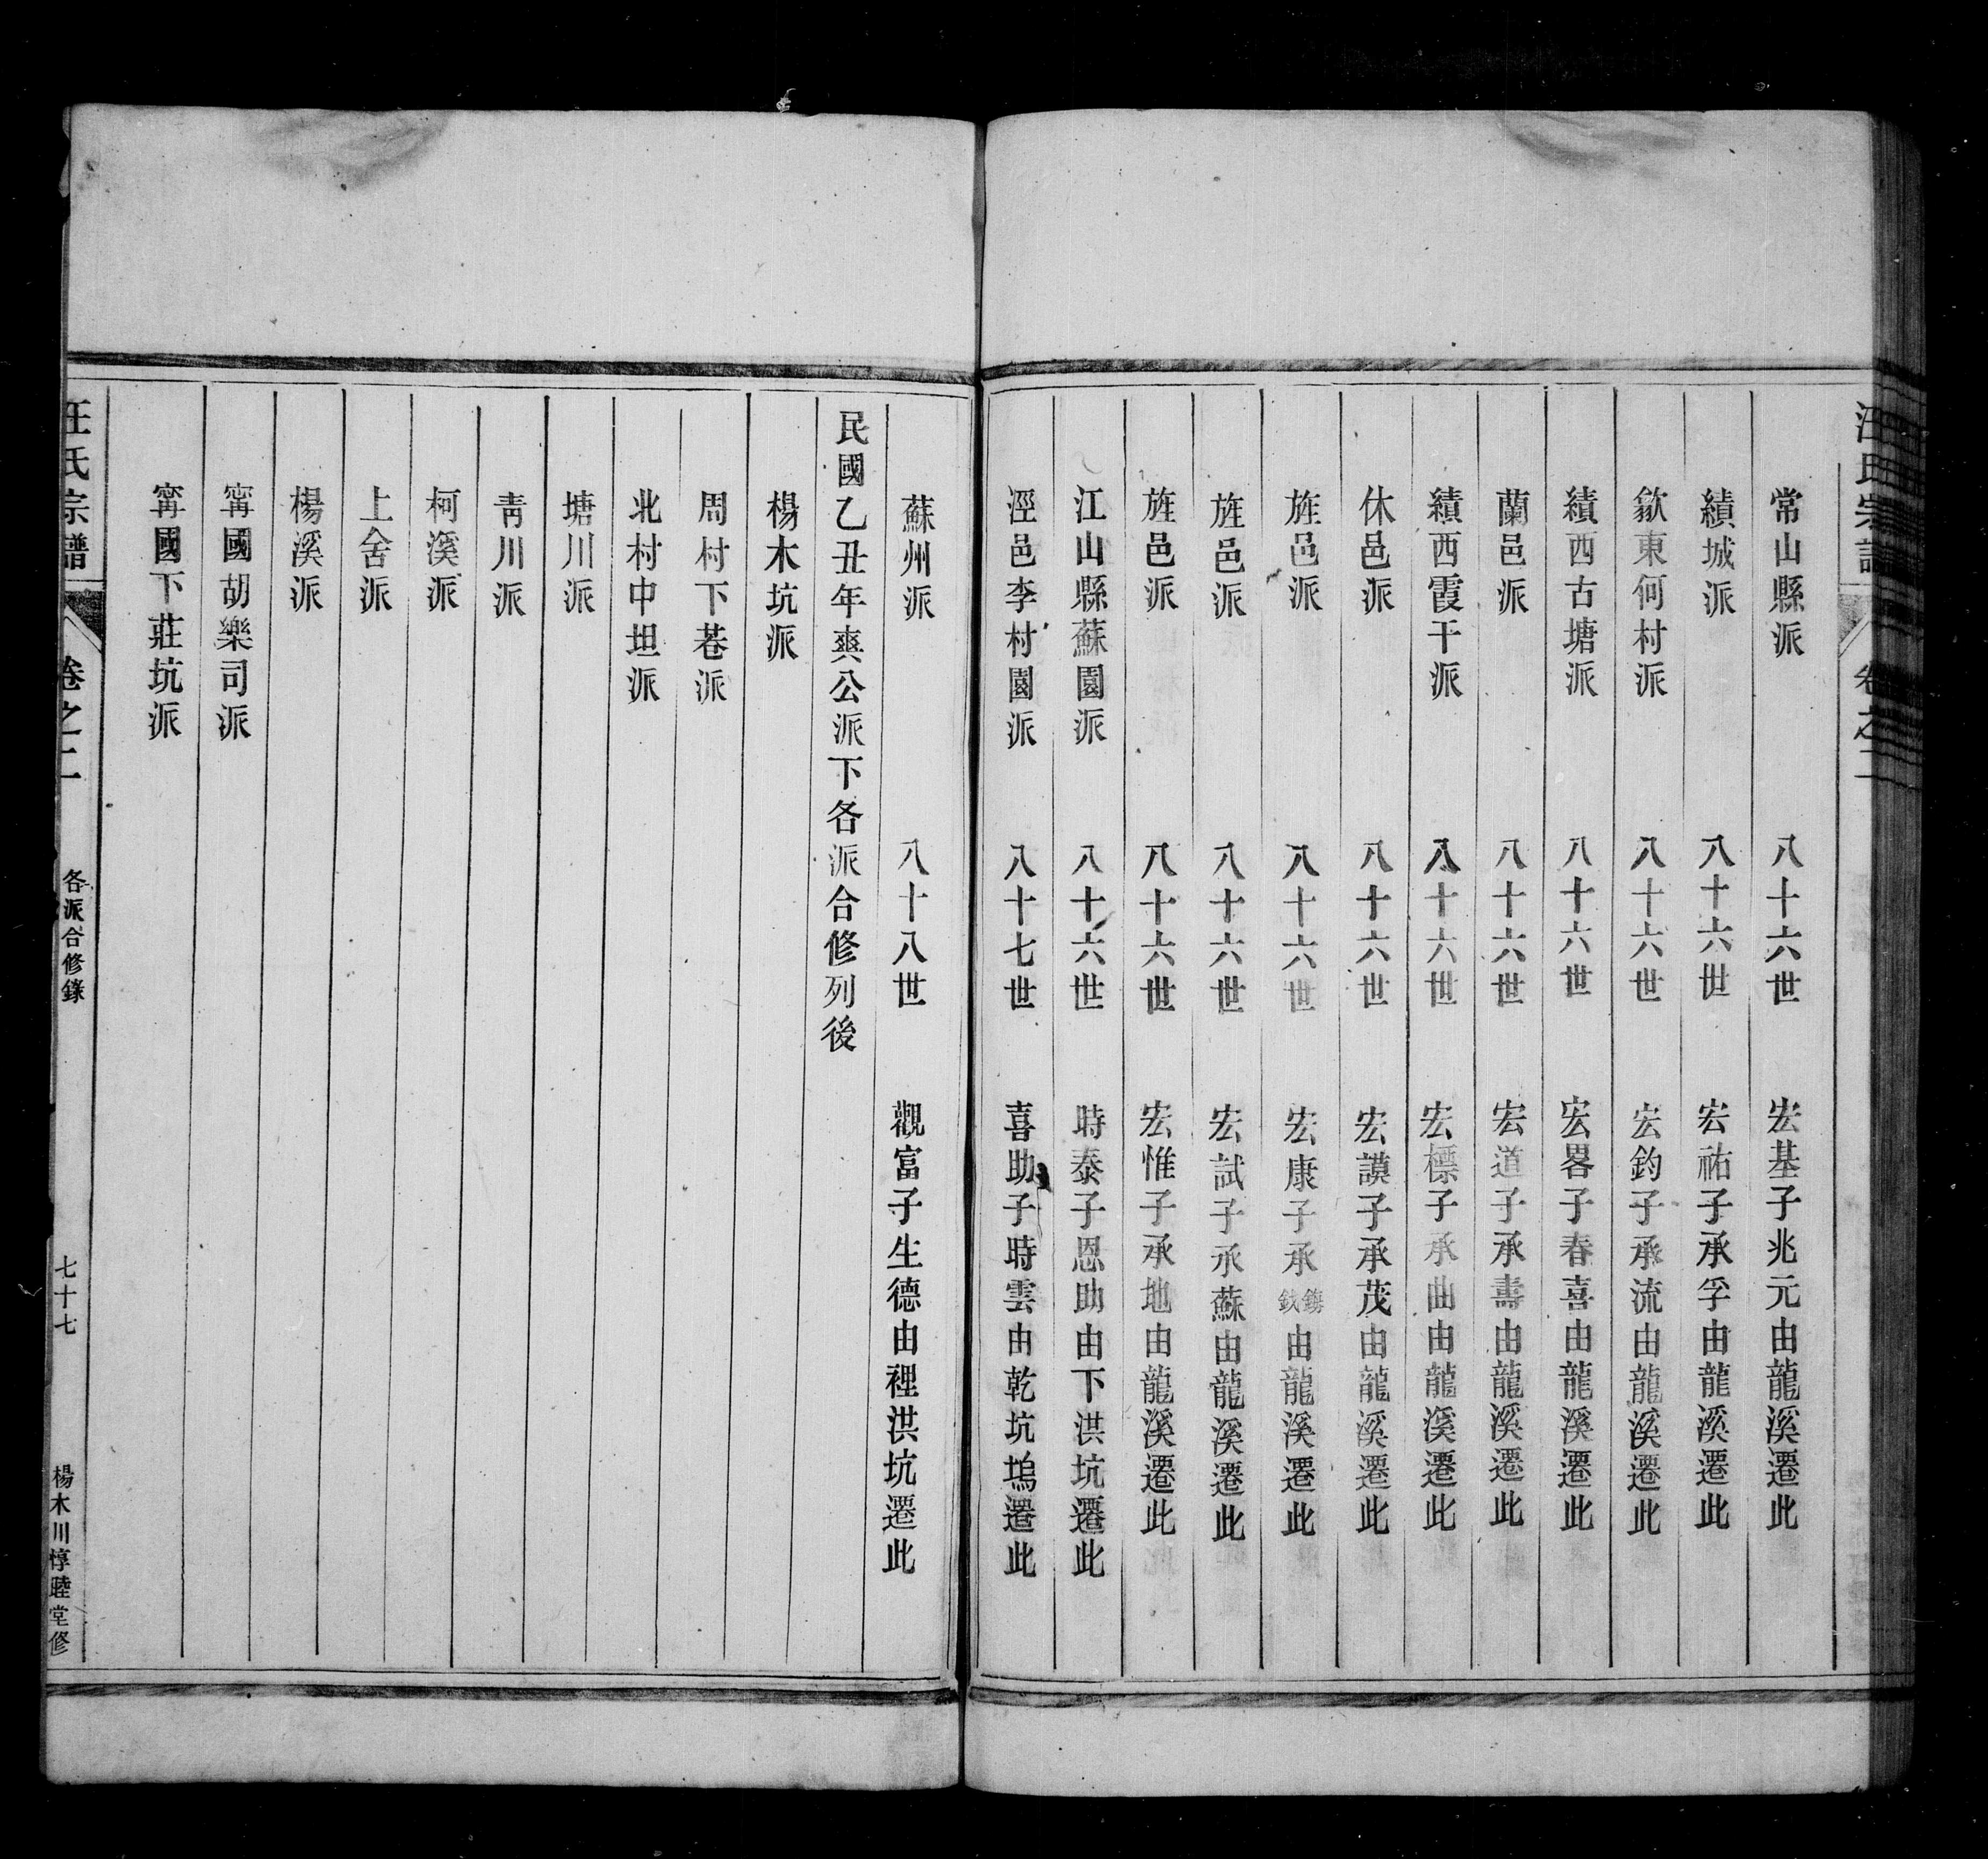 汪氏宗譜 卷之二
常山縣派 八十六世 宏基子兆元由龍溪遷此
績城派 八十六世 宏祐子承孚由龍溪遷此
歙東何村派 八十六世 宏鈞子承流由龍溪遷此
績西古塘派 八十六世 宏畧子春喜由龍溪遷此
蘭邑派 八十六世 宏道子承壽由龍溪遷此
績西霞干派 八十六世 宏標子承曲由龍溪遷此
休邑派 八十六世 宏謨子承茂由龍溪遷此
旌邑派 八十六世 宏康子承由龍溪遷此
旌邑派 八十六世 宏試子承蘇由龍溪遷此
旌邑派 八十六世 宏惟子承地由龍溪遷此
江山縣蘇園派 八十六世 時泰子恩助由下洪坑遷此
涇邑李村園派 八十七世 喜助子時雲由乾坑塢遷此
蘇州派 八十八世 觀富子生德由裡洪坑遷此
民國乙丑年爽公派下各派合修列後
楊木坑派
周村下巷派
北村中坦派
塘川派
靑川派
柯溪派
上舍派
楊溪派
甯國胡樂司派
甯國下莊坑派
汪氏宗譜 卷之二 各派合修錄 七十七 楊木川惇睦堂修